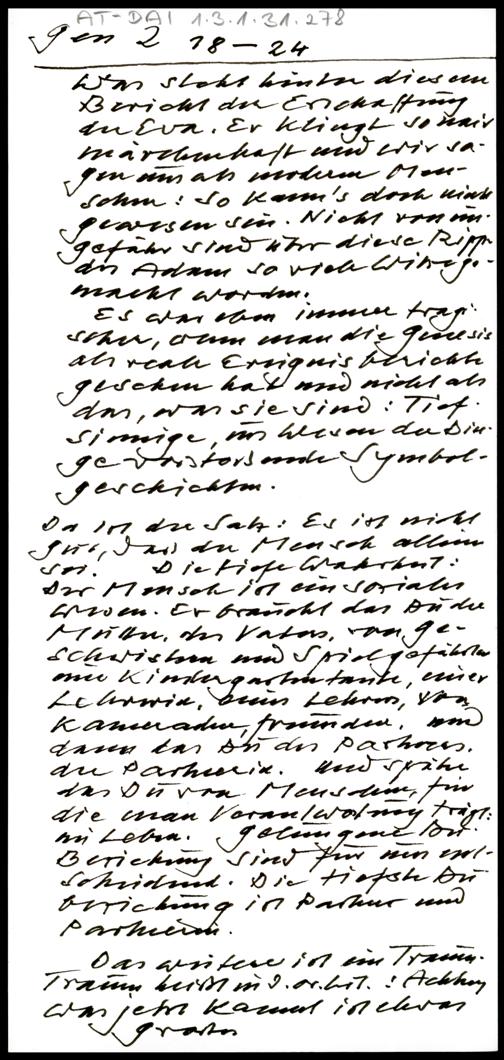 AT-DAI 1.3.1.31.278
Gen 2 18-24
Was steht hinter diesem
Bericht der Erschaffung
der Eva. Er klingt so naiv
märchenhaft und wir sa-
gen uns als moderne Men-
schen: So kann's doch nicht
gewesen sein. Nicht von un-
gefähr sind über diese Rippe
des Adam so viele Witze ge-
macht worden.
Es war eben immer tragi-
scher, wenn man die Genesis
als reale Ereignisberichte
gesehen hat und nicht als
das, was sie sind: Tief-
sinnige, ins Wesen der Din-
ge vorstoßende Symbol-
geschichten.
Da ist der Satz: Es ist nicht
gut, dass der Mensch allein
sei. Die tiefe Wahrheit:
Der Mensch ist ein soziales
Wesen. Er braucht das Du der
Mutter, des Vaters, von Ge-
schwistern und Spielgefährten
einer Kindergartentante, einer
Lehrerin, eines Lehrers, von
Kameraden, Freunden, und
dann das Du des Partners,
der Partnerin. Und später
das Du von Menschen, für
die man Verantwortung trägt:
im Leben. Gelungene Du-
Beziehung sind für uns ent-
scheidend. Die tiefste Du
beziehung ist Partner und
Partnerin.
Das weitere ist ein Traum.
Traum heißt in d. : Achtung
was jetzt kommt ist etwas
großes